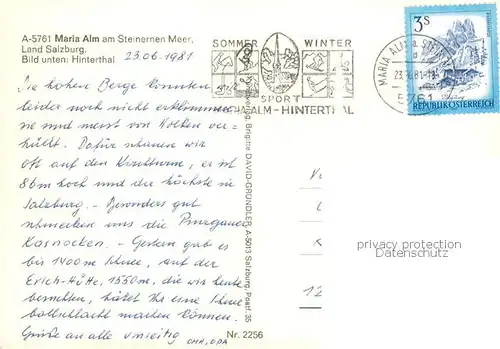 A-5761 Maria Alm am Steinernen Meer,
Land Salzburg.
Bild unten: Hinterthal
23.06.1981
Die hohen Berge konnten
leider noch nicht erklommen
und meist von Wolken ver-
hüllt. Dafür schauen wir
oft auf den Kirchturm, er ist
86m hoch und der höchste in
Salzburg. - Besonders gut
schmecken uns die Pinzgauer
Kasnocken. - Gestern gab es
bis 1400m Schnee, auf der
Erich-Hütte, 1550m, die wir heute
bestellten, hätet Ihr eine Schnee
ballschlacht machen können.
Grüße an alle
OMA, OPA
SOMMER WINTER
SPORT
ALM-HINTERTHAL
MARIA ALM a. STEIN
23. 6.81-13
5761
3S
REPUBLIK ÖSTERREICH
Verlag Brigitte DAVID-GRÜNDLER, A-5013 Salzburg, Postf. 35
Nr. 2256
12
privacy protection
Datenschutz